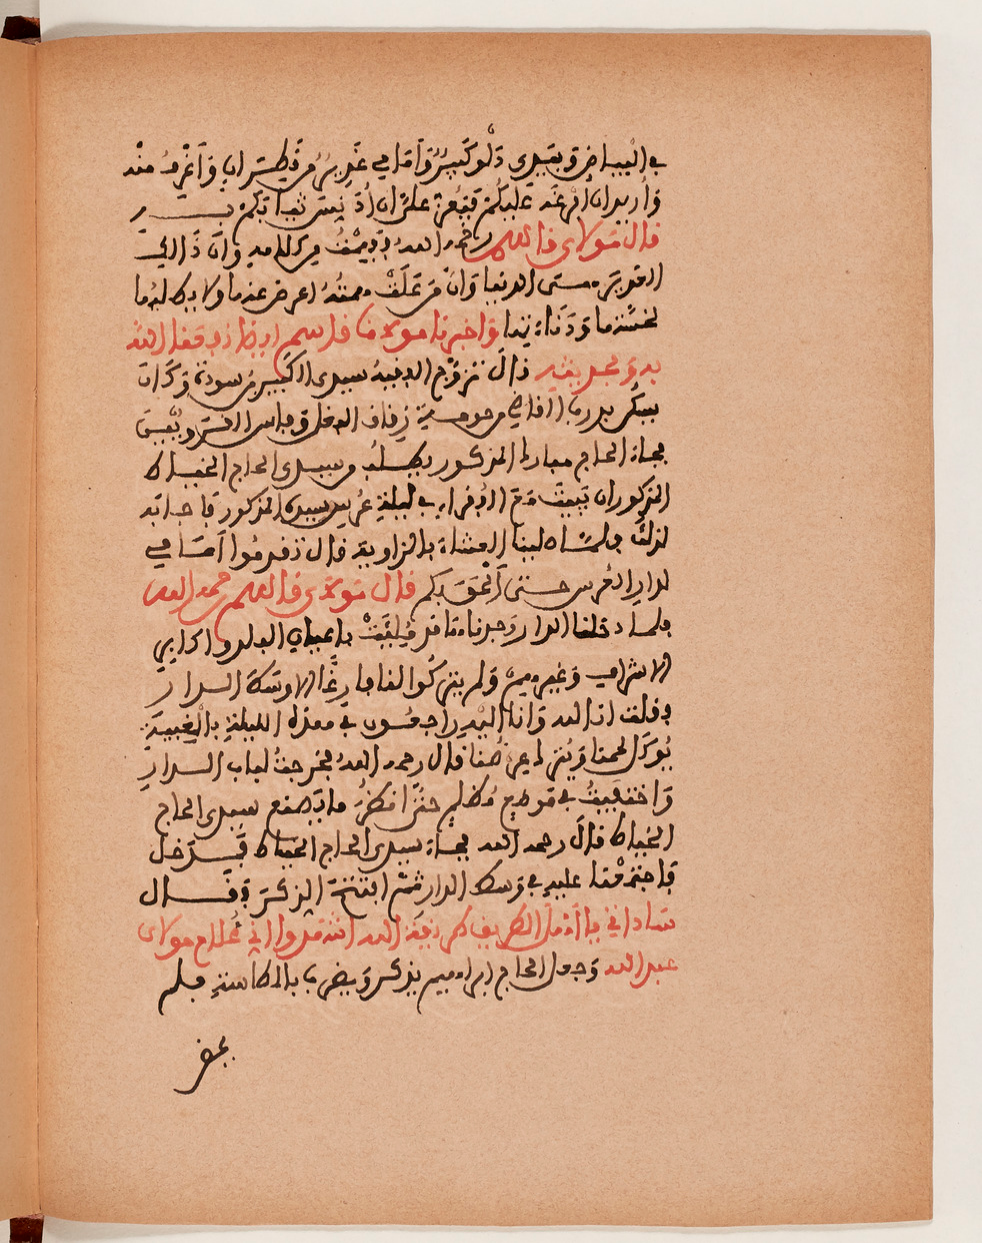 في البياض وبيدي دلو كبير وأمامي غدير من قطران وأغرف منه
وأريد ان افرغه عليكم فتفعن علي ان أدنس ثيابكم
قال مولاي قاسم رحمه الله ففهمت من كلامه وان ذالك
القدير هي الدنيا وان من تعلقت همته اعرض عنها ولا يطلبها
لخستها ودناءتها واخبرنا مولانا قاسم ايضا رفقنا الله
به وبحديثه قال تزوج الفقيه سيدي الكبير بن سودة وكان
يسكن بدرب القاضي من حومة زقاق البغل وفاس القرويين
فجاء الحاج مبارك المذكور يطلب من سيدي الحاج الخياط
المذكور ان يبيت مع الفقراء في ليلة عرس سيدي المذكور فاجابه
لذلك فلما صلينا العشاء بالزاوية قال تقدموا امامي
لدار العرس حتى ألحق بكم قال مولاي قاسم رحمه الله
فلما دخلنا الدار وجدناها قد مليت باعيان البلد واكابر
الاشراف وغيرهم ولم يتركوا لنا فارغا الا وسط الدار
فقلت انا لله وانا اليه راجعون في هذه الليلة بالغيبة
يوكل لحمنا وتنزل اعراضنا قال رحمه الله فخرجت لباب الدار
واختفيت في موضع مظلم حتى انظر ما يصنع سيدي الحاج
الخياط قال رحمه الله فجاء سيدي الحاج الخياط فدخل
فاجتمعنا عليه في وسط الدار ثم افتتح الذكر فقال
سادتي يا أهل الطريف طريقة الله انتدوا الي غلام مولاي
عبد الله وجعل الحاج ابراهيم يذكر ويضرب بالطاسة فلم
يحضر